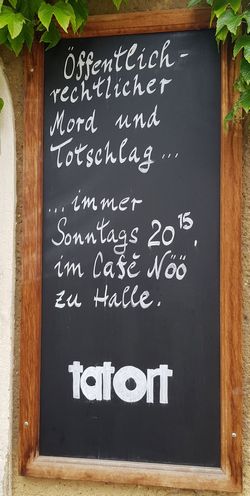 Öffentlich-
rechtlicher
Mord und
Totschlag...
...immer
Sonntags 20 15,
im Café Nöö
zu Halle.
tatort